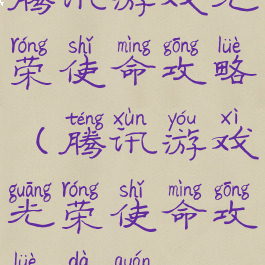 腾讯游戏光
róng shǐ mìng gōng lüè
荣使命攻略
téng xùn yóu xì
（腾讯游戏
guāng róng shǐ mìng gōng
光荣使命攻
lüè dà quán